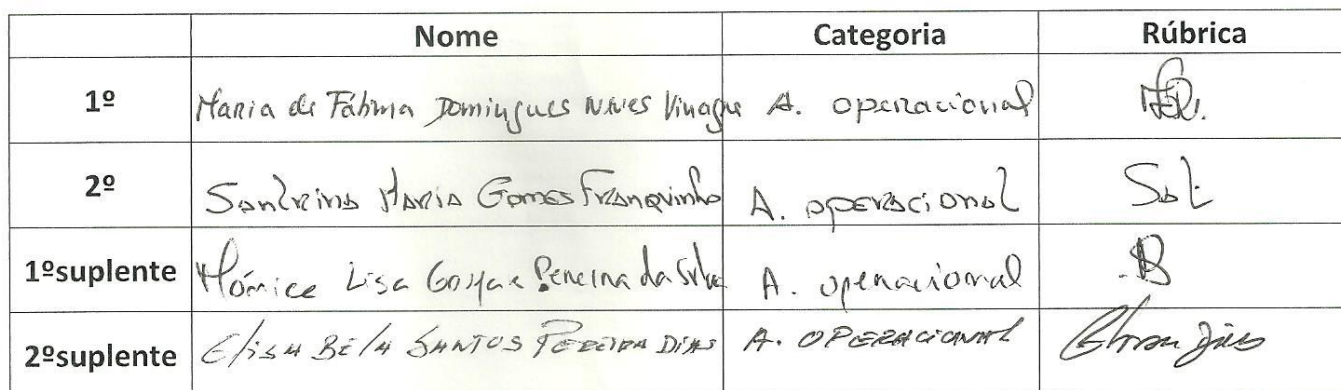 Nome Categoria Rúbrica
1º Maria de Fátima Domingues Neves Vinagre A. operacional
2º Maria Gomes Franquinho A. operacional
1ºsuplente Mónica Lisa Pereira da Silva A. operacional
2ºsuplente Elisa Bela SANTOS PEREIRA DIAS A. OPERACIONAL